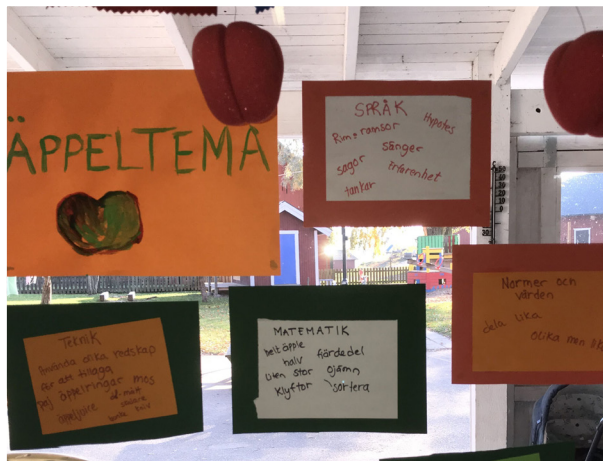 ÄPPELTEMA
SPRÅK
Rim & ramsor
Hypotes
sånger
sagor
Erfarenhet
tankar
Normer och
värden
dela lika
Olika men
Teknik
Använda olika redskap
för att tillaga
paj äppelringar mos
äppeljuice
kniv
MATEMATIK
helt äpple
halv fjärdedel
liten stor ojämn
klyftor sortera